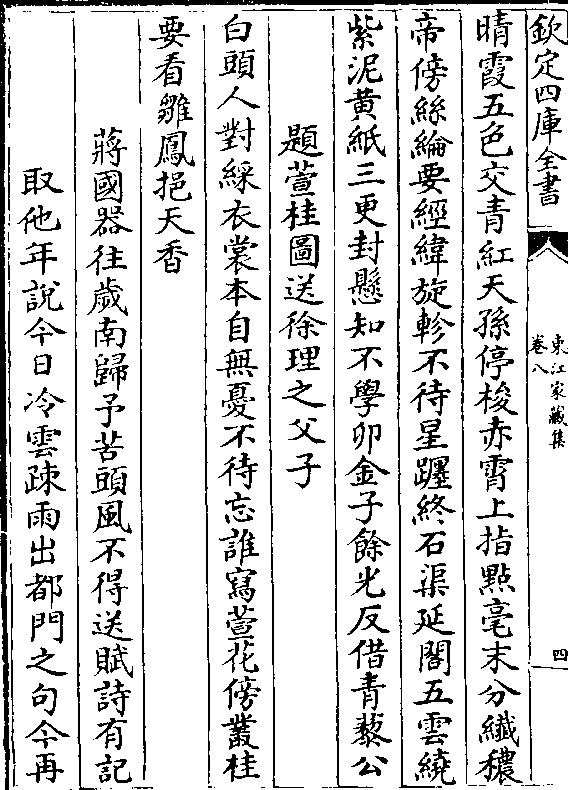 欽定四庫全書
東江家藏集
卷八
四
晴霞五色交青紅天孫停梭赤霄上指點毫末分纖穠
帝傍絲綸要經緯旋軫不待星躔終石渠延閣五雲繞
紫泥黄紙三更封懸知不學卯金子餘光反借青藜公
題萱桂圖送徐理之父子
白頭人對綵衣裳本自無憂不待忘誰寫萱花傍叢桂
要看雛鳳挹天香
蔣國器往歲南歸予苦頭風不得送賦詩有記
取他年說今日冷雲疎雨出都門之句今再